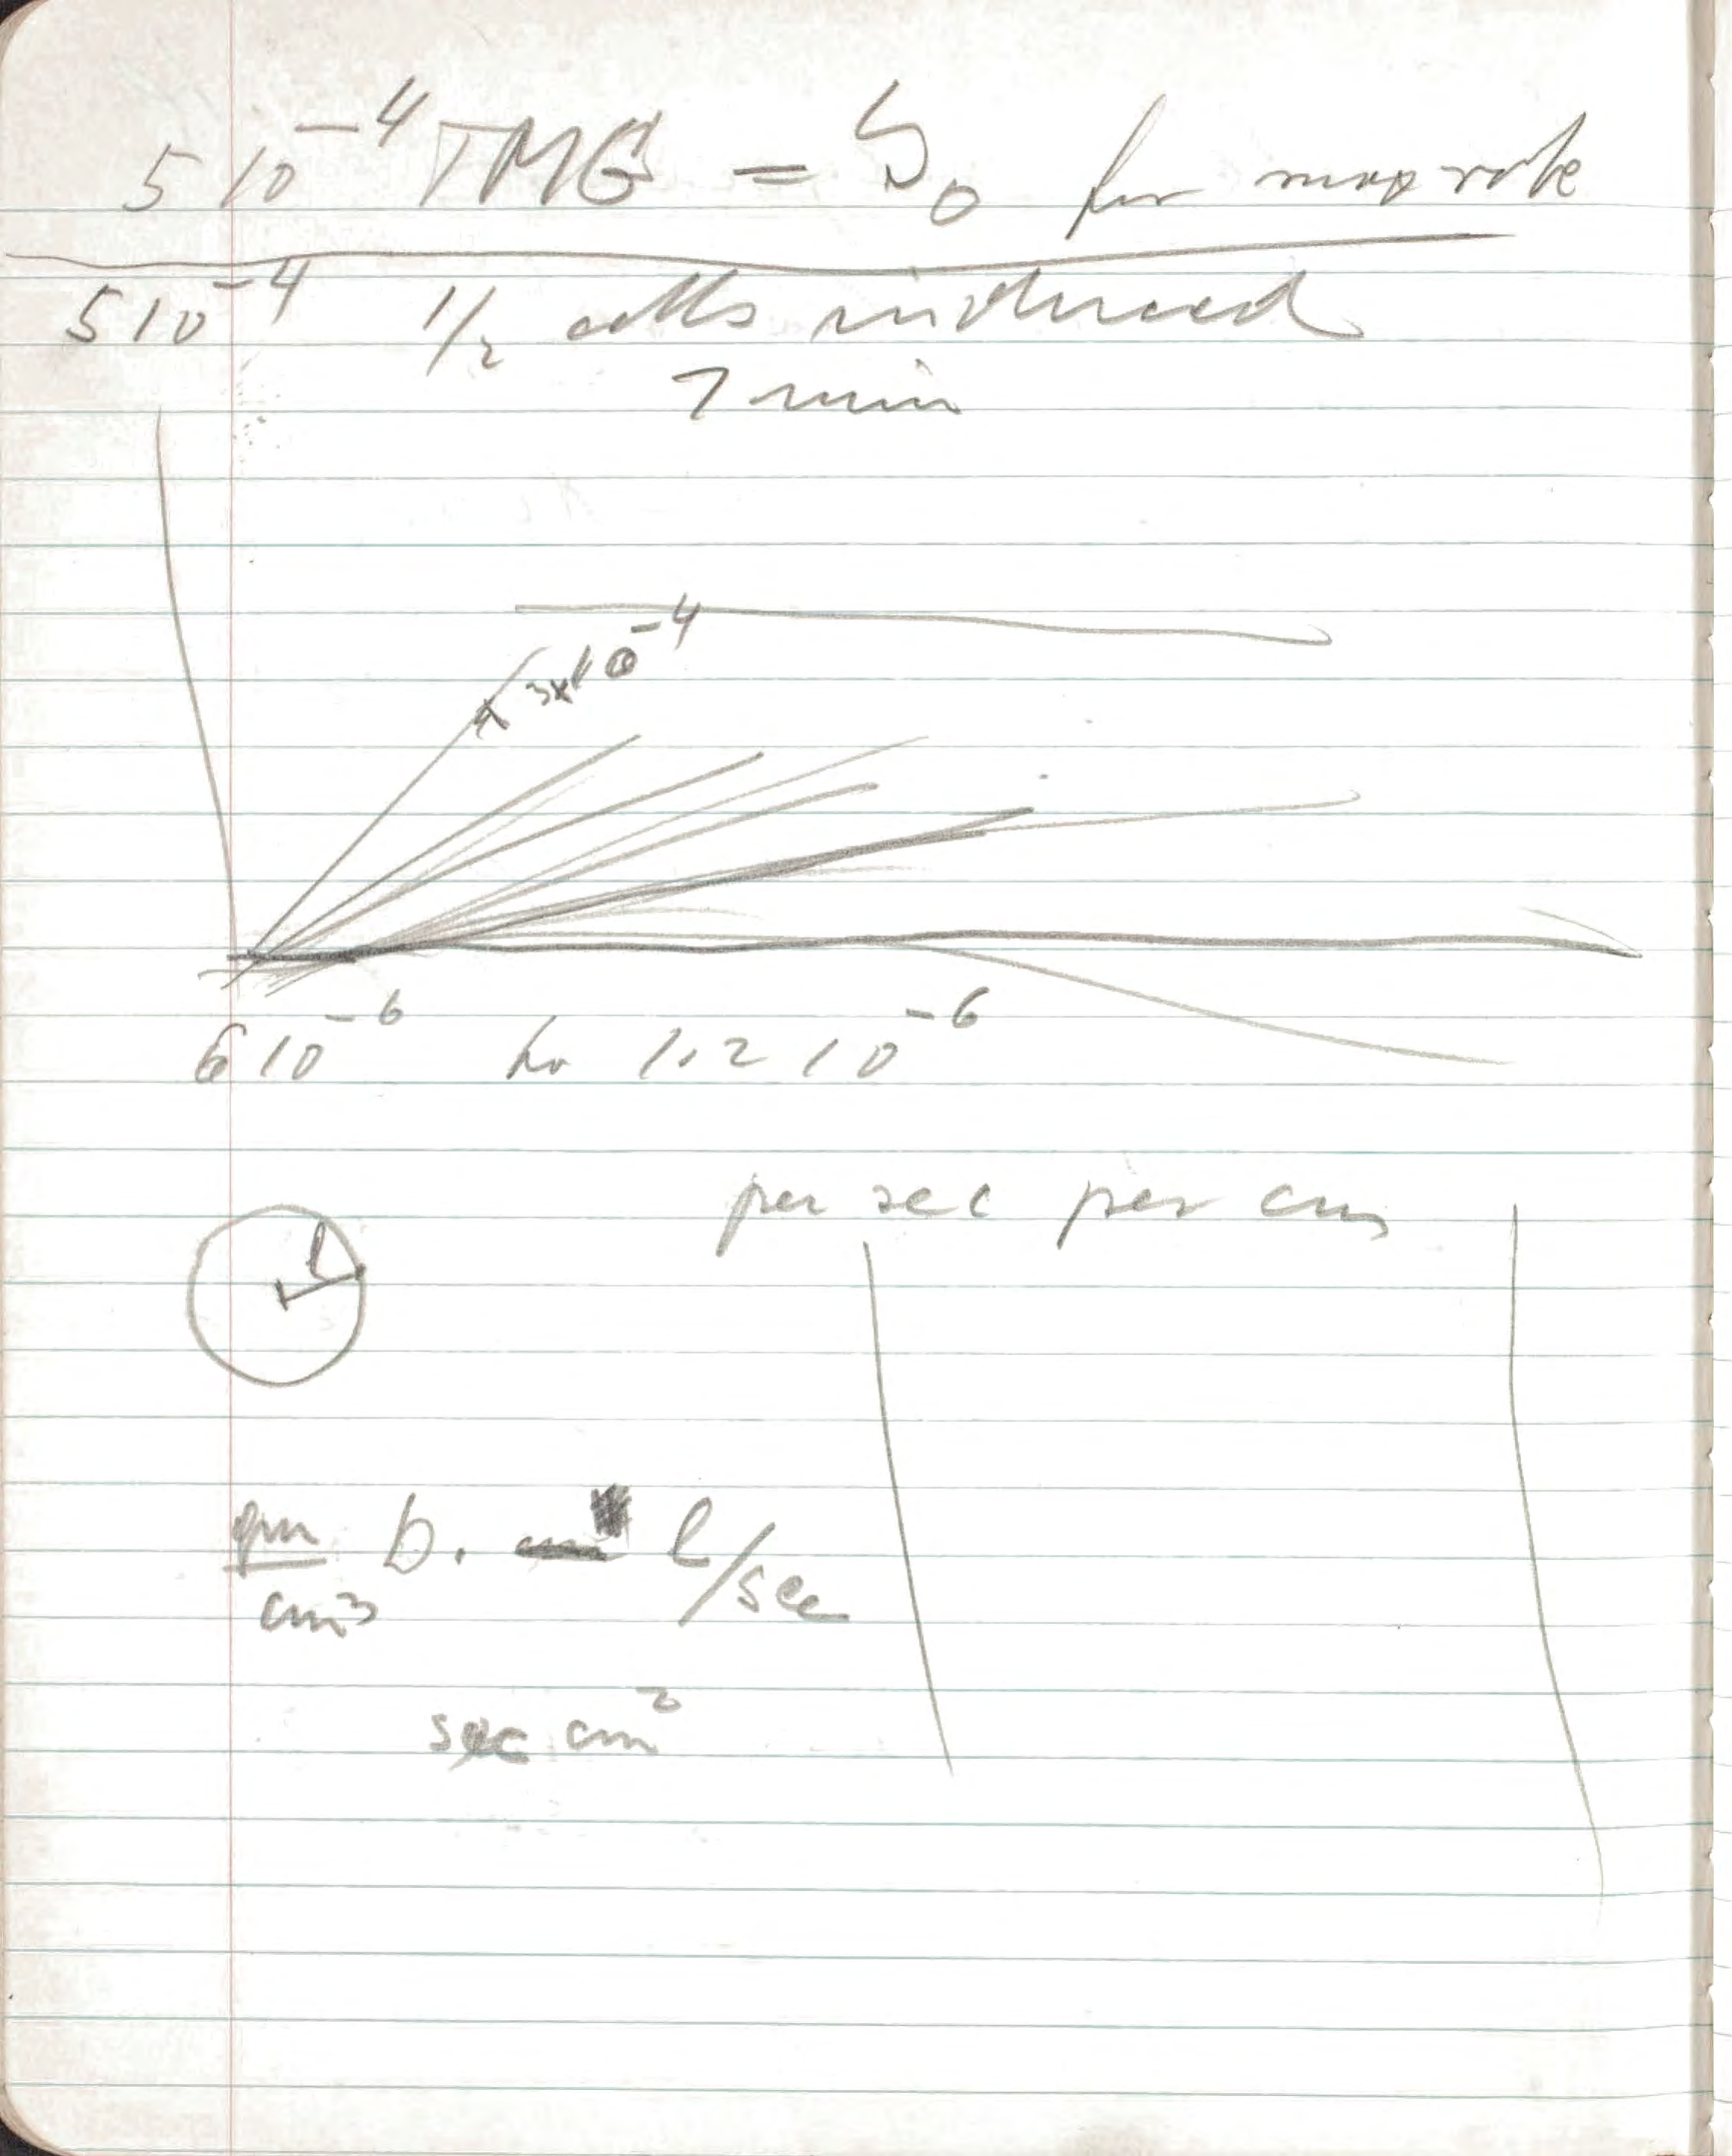 5 10⁻⁴ TMG = S₀ for max rate
5 10⁻⁴ 1/2 cells induced
7 min
3x10⁻⁴
6 10⁻⁶ to 1.2 10⁻⁶
per sec per cm
l
gm/cm³ b. l/sec
sec cm²